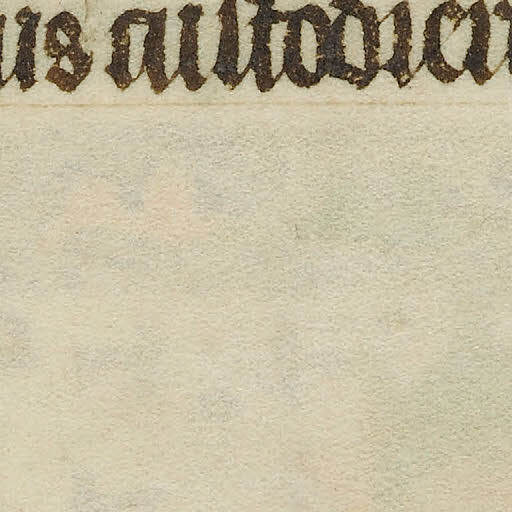 us custodien